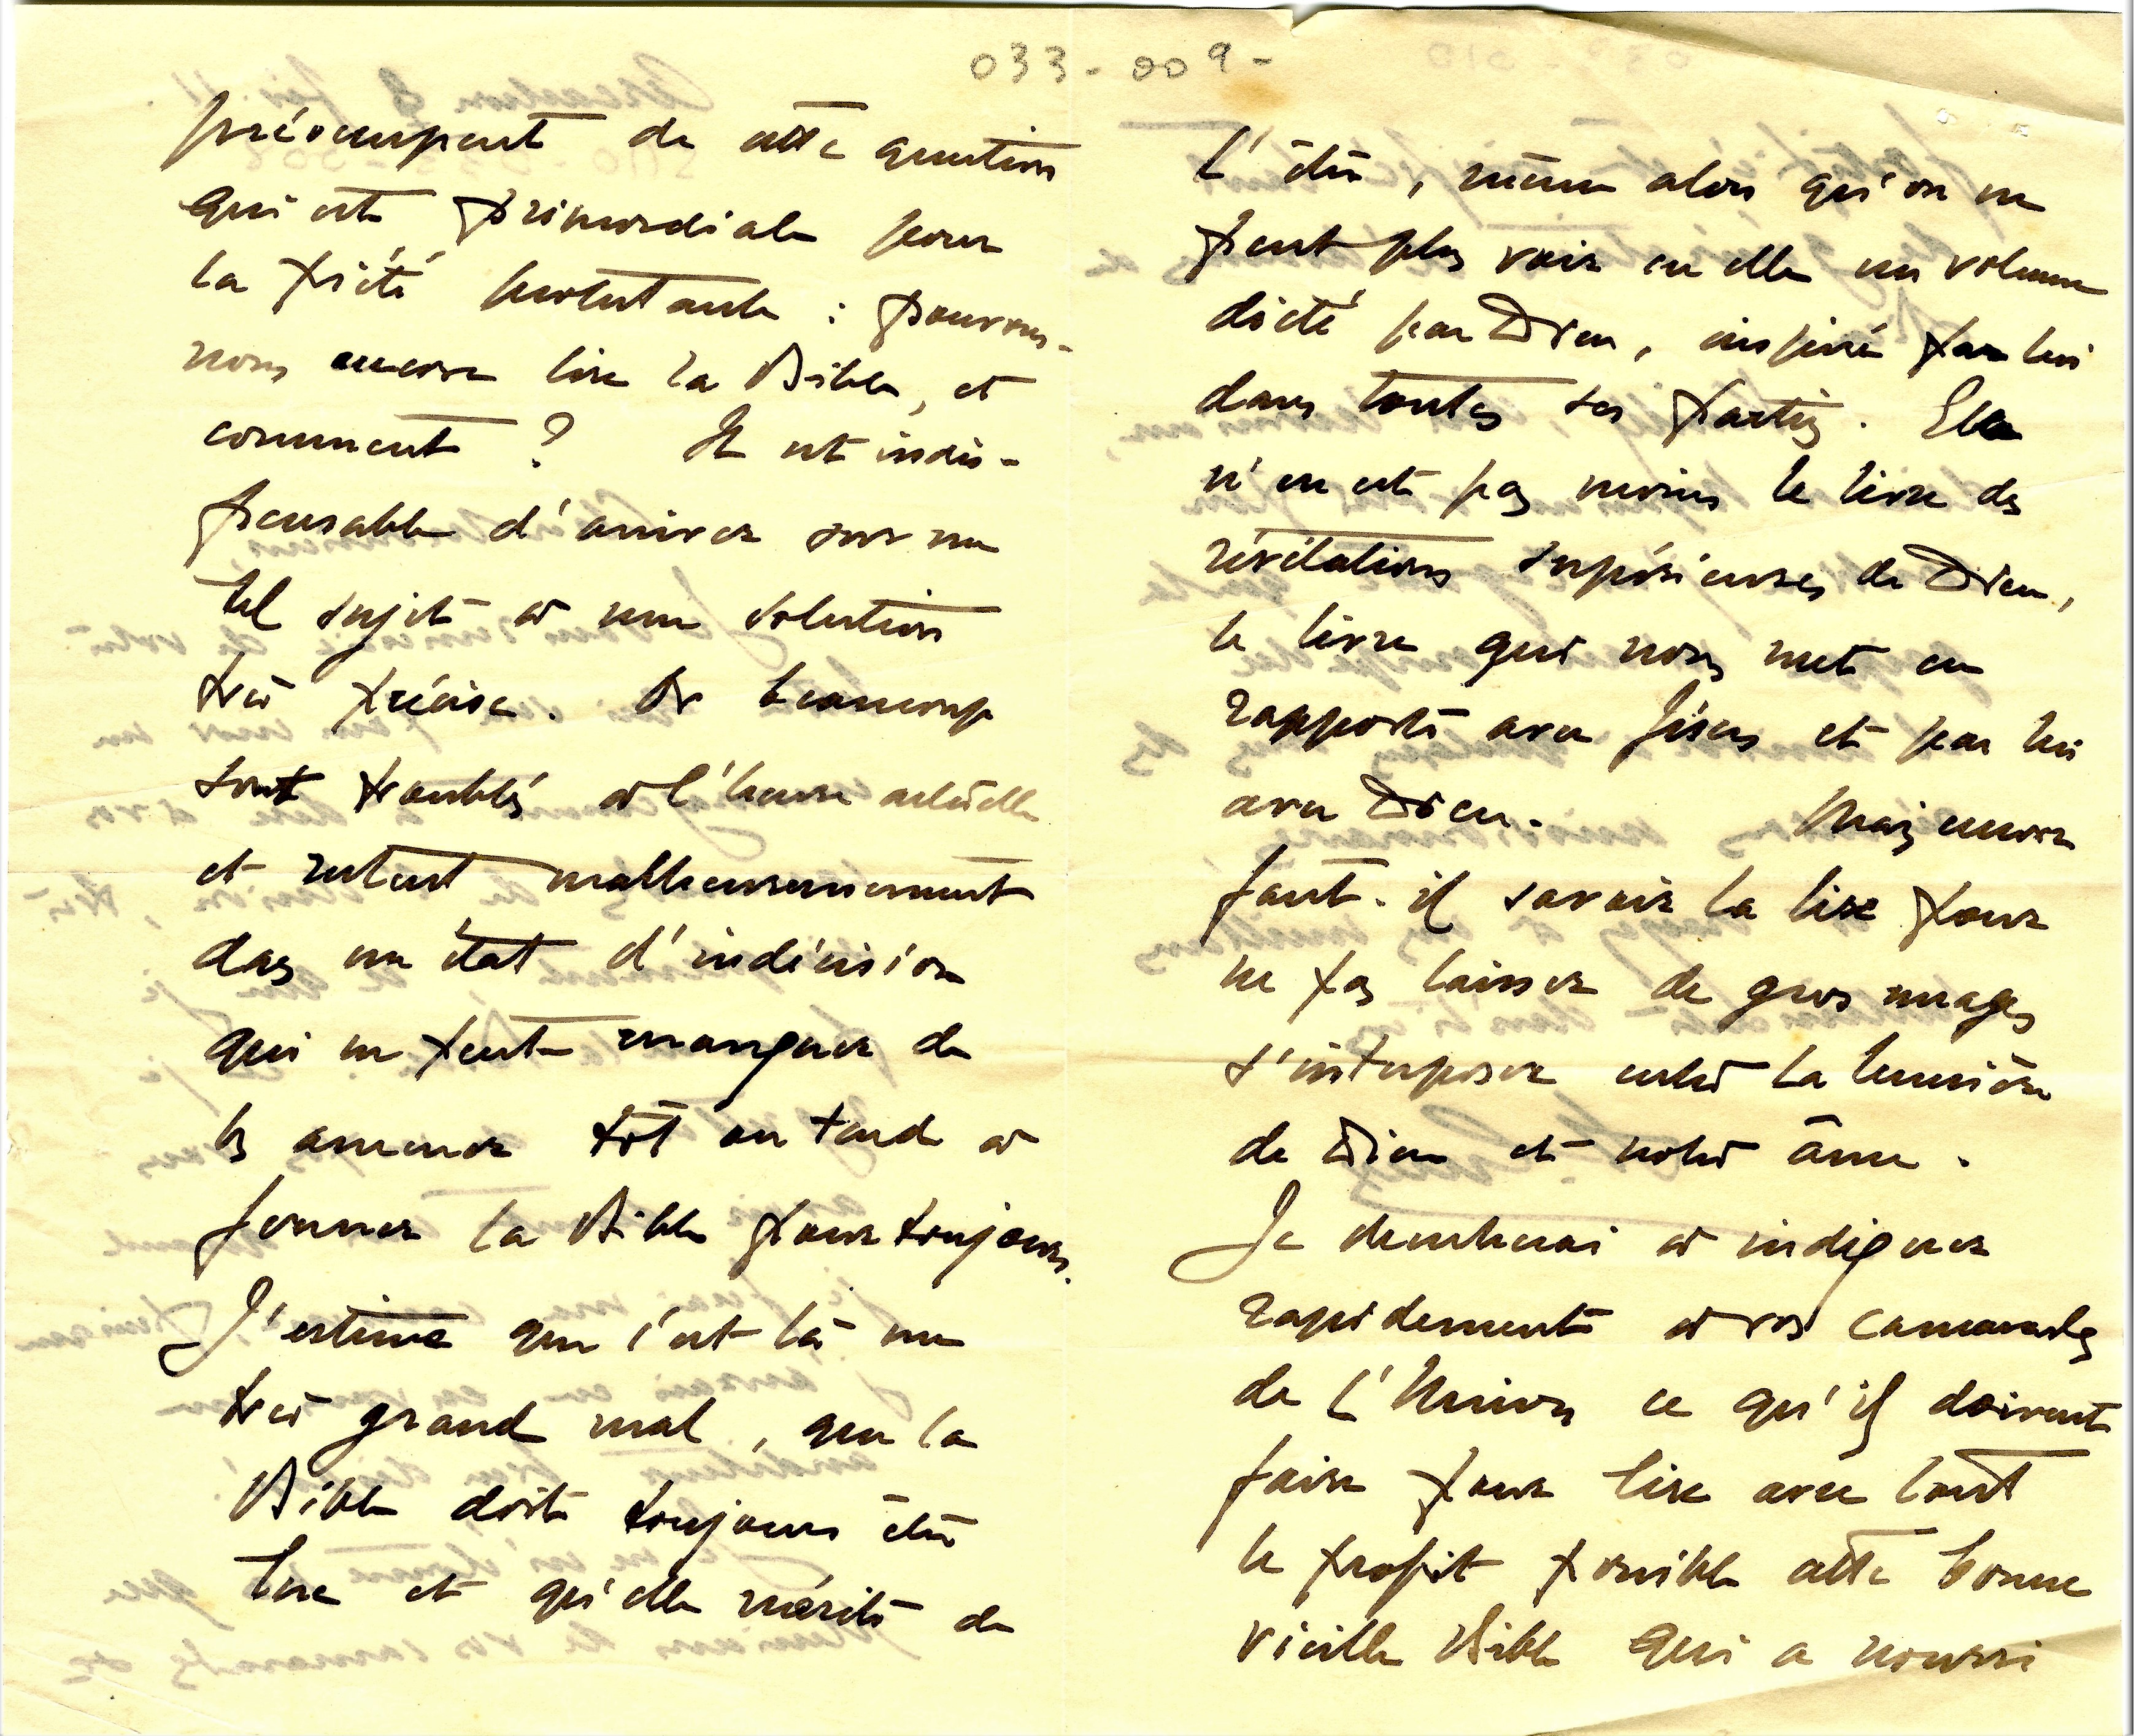 033-009-
préoccupent de cette question
qui est primordiale pour
la piété protestante : pouvons-
nous encore lire la Bible, et
comment ? Il est indis-
pensable d'arriver sur un
tel sujet à une solution
très précise. Or beaucoup
sont troublés à l'heure actuelle
et restent malheureusement
dans un état d'indécision
qui ne peut manquer de
les amener tôt ou tard à
fermer la Bible pour toujours.
J'estime que c'est là un
très grand mal, que la
Bible doit toujours être
lue et qu'elle mérite de
l'être, même alors qu'on ne
peut plus voir en elle un volume
dicté par Dieu, inspiré par lui
dans toutes ses parties. Elle
n'en est pas moins le livre des
révélations supérieures de Dieu,
le livre qui nous met en
rapport avec Jésus et par lui
avec Dieu. Mais encore
faut-il savoir la lire pour
ne pas laisser de gros nuages
s'interposer entre la lumière
de Dieu et notre âme.
Je chercherai à indiquer
rapidement à vos camarades
de l'Union ce qu'ils doivent
faire pour lire avec tout
le profit possible cette bonne
vieille Bible qui a nourri